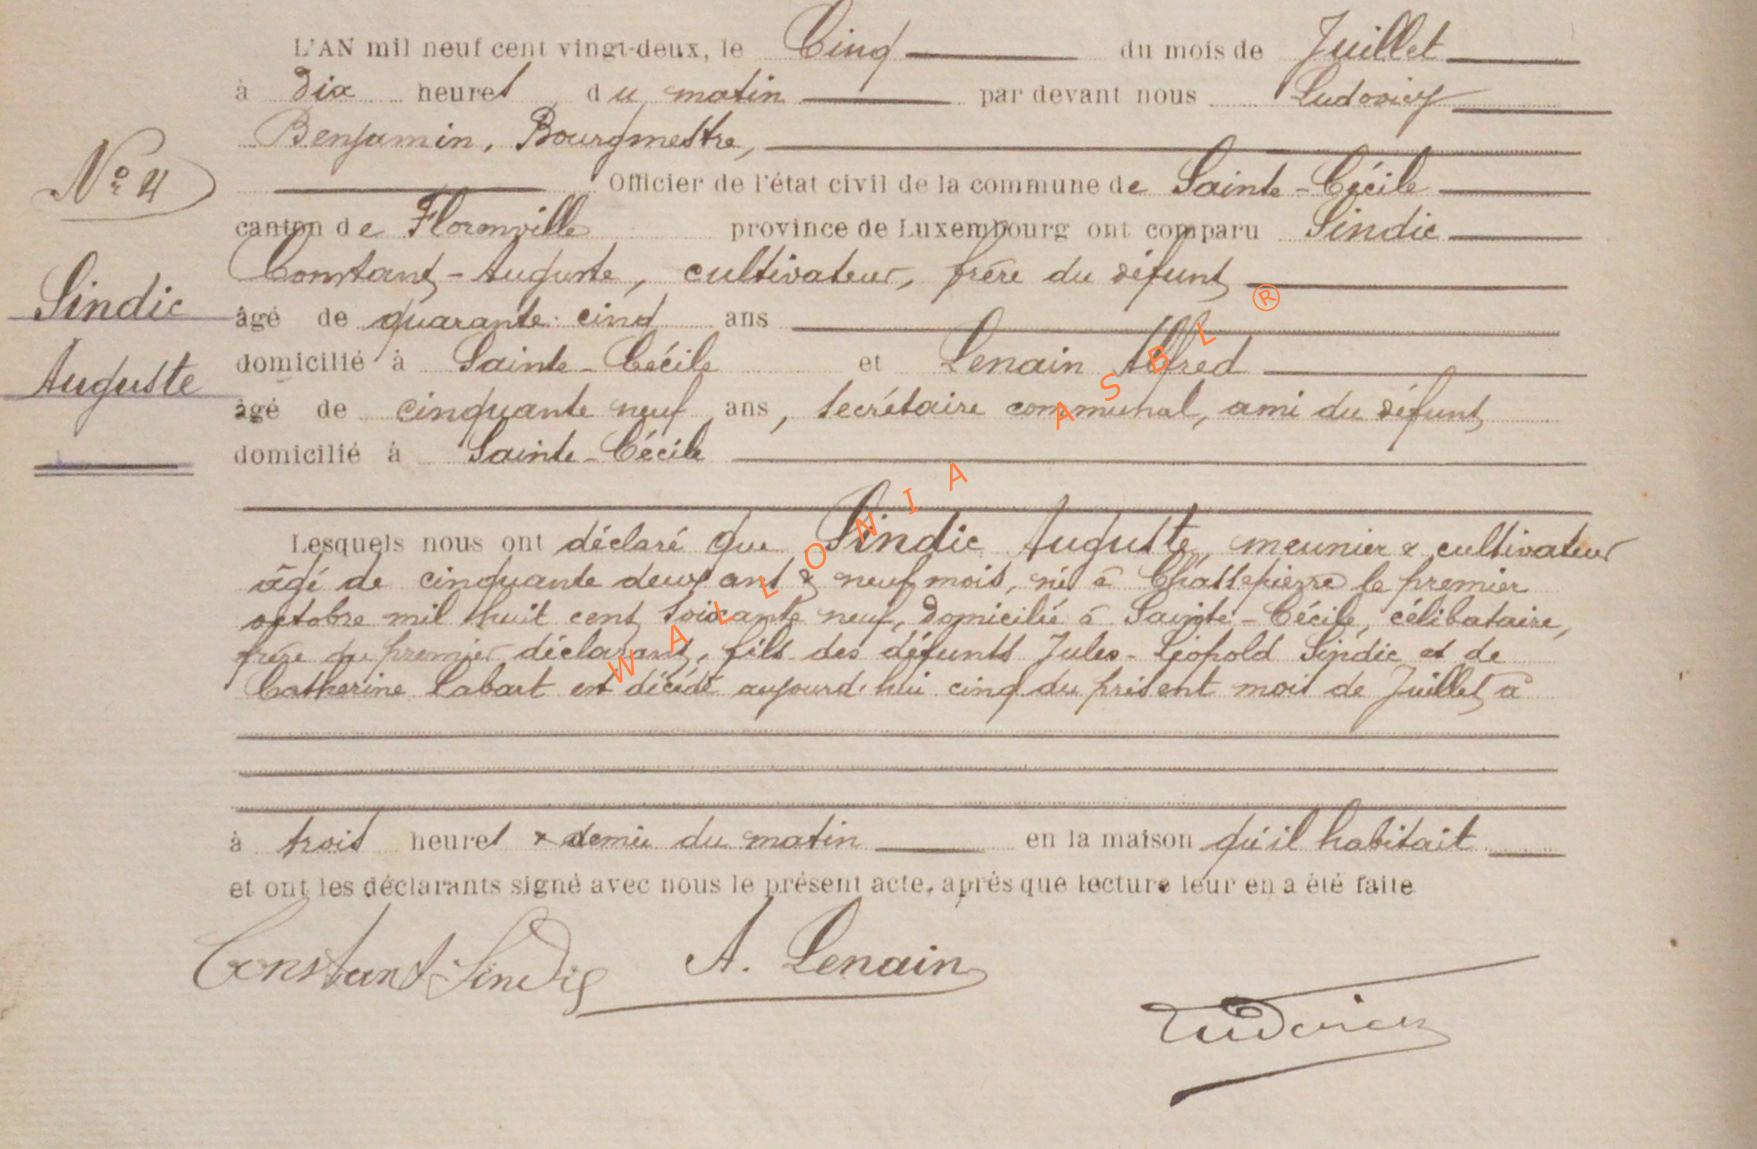 L'AN mil neuf cent vingt-deux, le Cinq du mois de Juillet
à dix heures du matin par devant nous Ludovicy
Benjamin, Bourgmestre,
Officier de l'état civil de la commune de Sainte-Cécile
canton de Florenville province de Luxembourg ont comparu Sindic
Constant-Auguste, cultivateur, frère du défunt
âgé de quarante-cinq ans
domicilié à Sainte-Cécile et Lenain Alfred
âgé de cinquante neuf ans, secrétaire communal, ami du défunt
domicilié à Sainte-Cécile
Lesquels nous ont déclaré que Sindic Auguste, meunier & cultivateur
âgé de cinquante deux ans & neuf mois, né à Chassepierre le premier
octobre mil huit cent soixante neuf, domicilié à Sainte-Cécile, célibataire,
frère du premier déclarant, fils des défunts Jules-Léopold Sindic et de
Catherine Labart est décédé aujourd'hui cinq du présent mois de Juillet à
à trois heures & demie du matin en la maison qu'il habitait
et ont les déclarants signé avec nous le présent acte, après que lecture leur en a été faite
Constant Sindic A. Lenain
Ludovicy
N° 4
Sindic
Auguste
WALLONIA ASBL ®